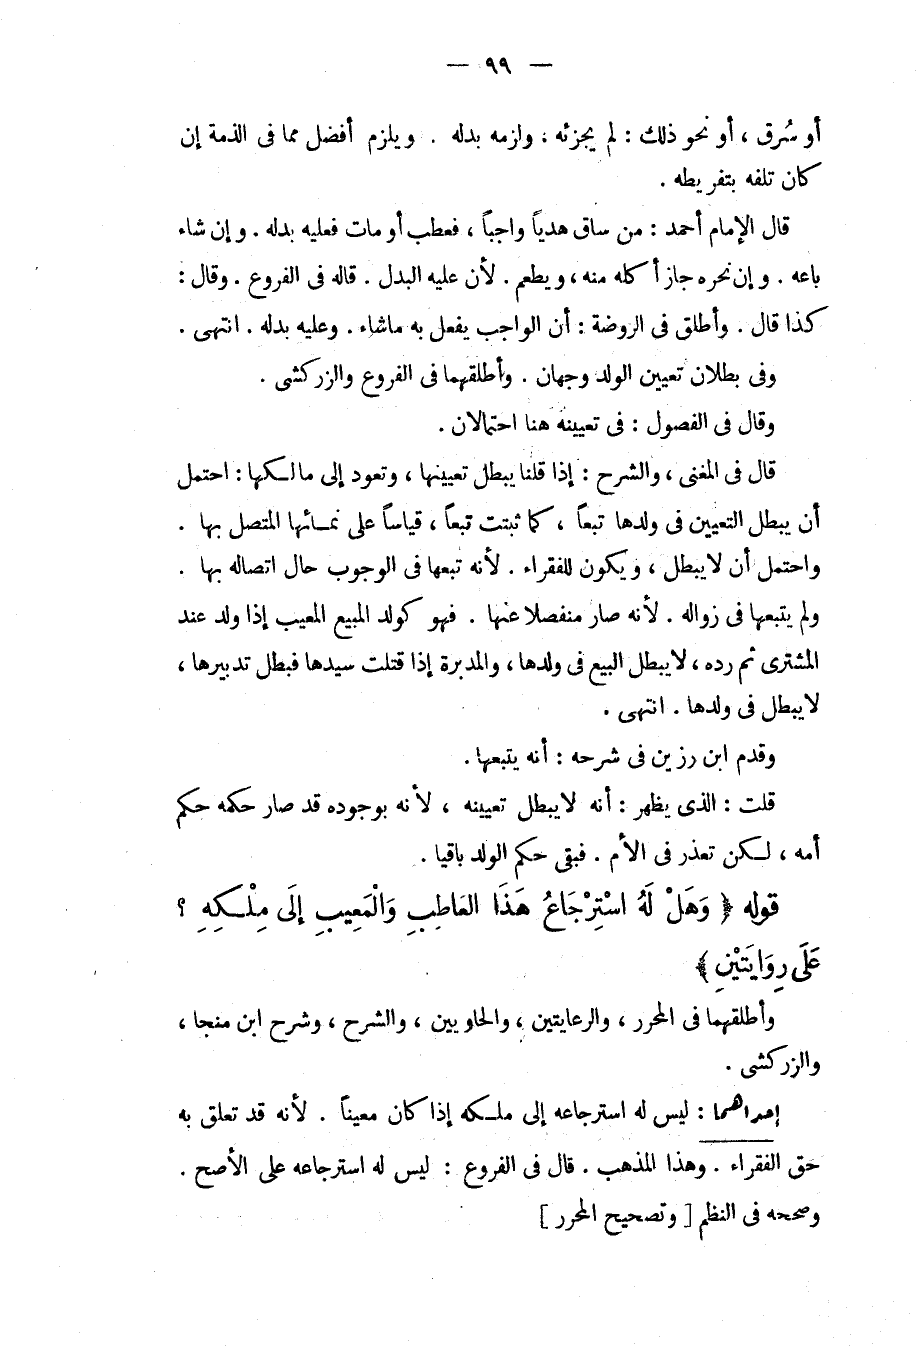 — ٩٩ —
أو سُرق ، أو نحو ذلك : لم يجزئه ، ولزمه بدله . ويلزم أفضل مما فى الذمة إن
كان تلفه بتفريطه .
قال الإمام أحمد : من ساق هدياً واجباً ، فعطب أو مات فعليه بدله . وإن شاء
باعه . وإن نحره جاز أكله منه ، ويطعم . لأن عليه البدل . قاله فى الفروع . وقال :
كذا قال . وأطلق فى الروضة : أن الواجب يفعل به ماشاء . وعليه بدله . انتهى .
وفى بطلان تعيين الولد وجهان . وأطلقهما فى الفروع والزركشى .
وقال فى الفصول : فى تعيينه هنا احتمالان .
قال فى المغنى ، والشرح : إذا قلنا يبطل تعيينها ، وتعود إلى مالكها : احتمل
أن يبطل التعيين فى ولدها تبعاً ، كما ثبتت تبعاً ، قياساً على نمائها المتصل بها .
واحتمل أن لايبطل ، ويكون للفقراء . لأنه تبعها فى الوجوب حال اتصاله بها .
ولم يتبعها فى زواله . لأنه صار منفصلا عنها . فهو كولد المبيع المعيب إذا ولد عند
المشترى ثم رده ، لايبطل البيع فى ولدها ، والمدبرة إذا قتلت سيدها فبطل تدبيرها ،
لايبطل فى ولدها . انتهى .
وقدم ابن رزين فى شرحه : أنه يتبعها .
قلت : الذى يظهر : أنه لايبطل تعيينه ، لأنه بوجوده قد صار حكمه حكم
أمه ، لكن تعذر فى الأم . فبقى حكم الولد باقيا .
قوله ﴿ وَهَلْ لَهُ اسْتِرْجَاعُ هَذَا العَاطِبِ وَالْمَعِيبِ إِلَى مِلْكِهِ ؟
عَلَى رِوَايَتَيْنِ ﴾
وأطلقهما فى المحرر ، والرعايتين ، والحاويين ، والشرح ، وشرح ابن منجا ،
والزركشى .
إحداهما : ليس له استرجاعه إلى ملكه إذا كان معيناً . لأنه قد تعلق به
حق الفقراء . وهذا المذهب . قال فى الفروع : ليس له استرجاعه على الأصح .
وصححه فى النظم [ وتصحيح المحرر ]